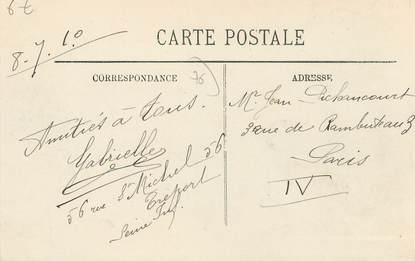 6€
8-7-10
CARTE POSTALE
CORRESPONDANCE
76
Amitiés à tous.
Gabrielle
56 rue St Michel 56
Treport
Seine Inf.
ADRESSE
Mr Jean
3 rue de Rambuteau 3
Paris
IV